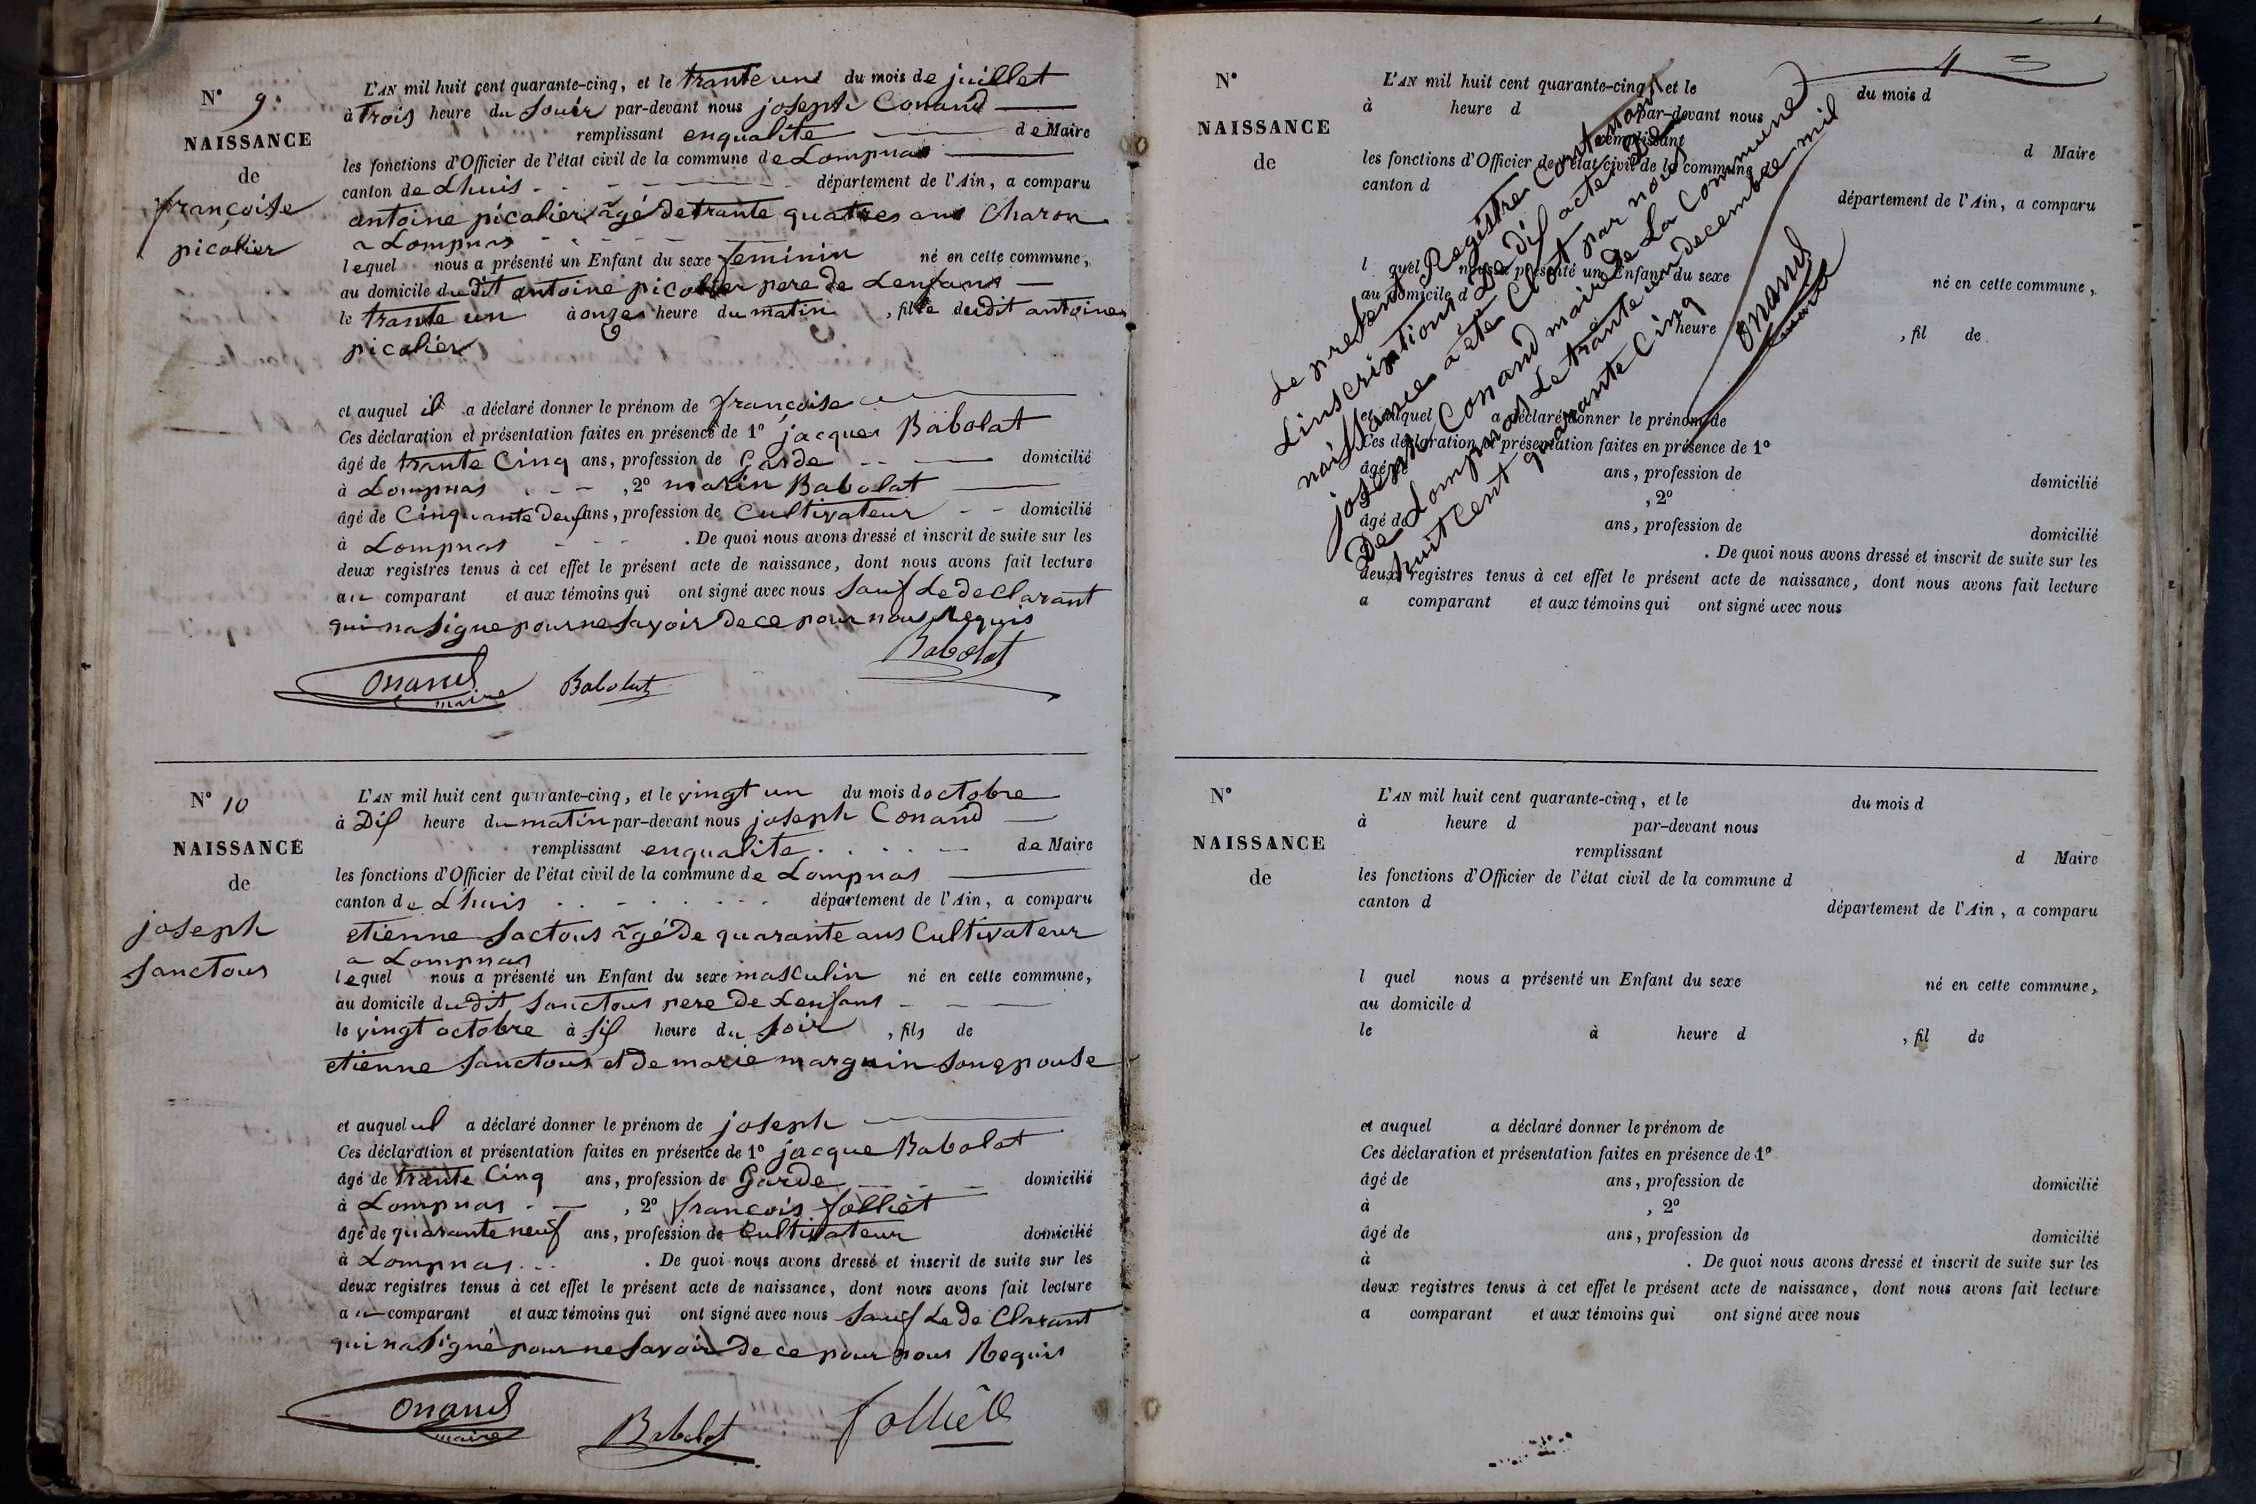 N° 9.
NAISSANCE
de
françoise
picolier
L'AN mil huit cent quarante-cinq, et le trante un du mois de juillet
à trois heure du Souér par-devant nous joseph Conand
remplissant enqualite de Maire
les fonctions d'Officier de l'état civil de la commune de Lompnas
canton de Lhuis département de l'Ain, a comparu
antoine picolier âgé de trante quatres ans Charon
a Lompnas
lequel nous a présenté un Enfant du sexe feminin né en cette commune,
au domicile dudit antoine picolier pere de Lenfant
le trante un à onzes heure du matin, fille dudit antoine
picolier
et auquel il a déclaré donner le prénom de françoise
Ces déclaration et présentation faites en présence de 1° jacques Babolat
âgé de trante Cinq ans, profession de Garde domicilié
à Lompnas, 2° marin Babolat
âgé de Cinquante deuf ans, profession de Cultivateur domicilié
à Lompnas. De quoi nous avons dressé et inscrit de suite sur les
deux registres tenus à cet effet le présent acte de naissance, dont nous avons fait lecture
au comparant et aux témoins qui ont signé avec nous Sauf Le de Clarant
qui na Signe pour ne Savoir de ce pour nous Requis
Babolat
Conand maire Babolat
N° 10
NAISSANCE
de
joseph
Sanctous
L'AN mil huit cent quarante-cinq, et le vingt un du mois doctobre
à Dif heure du matin par-devant nous joseph Conand
remplissant enqualite de Maire
les fonctions d'Officier de l'état civil de la commune de Lompnas
canton de Lhuis département de l'Ain, a comparu
etienne Sactous âgé de quarante ans Cultivateur
a Lompnas
lequel nous a présenté un Enfant du sexe masculin né en cette commune,
au domicile dudit Sanctous pere de Lenfant
le vingt octobre à Sif heure du Soir, fils de
etienne Sanctous et de marie marguin Son epouse
et auquel il a déclaré donner le prénom de joseph
Ces déclaration et présentation faites en présence de 1° jacque Babolat
âgé de trante Cinq ans, profession de Garde domicilié
à Lompnas, 2° francois folliet
âgé de quarante neuf ans, profession de Cultivateur domicilié
à Lompnas. De quoi nous avons dressé et inscrit de suite sur les
deux registres tenus à cet effet le présent acte de naissance, dont nous avons fait lecture
au comparant et aux témoins qui ont signé avec nous Sauf Le de Clarant
qui na Signé pour ne Savoir de ce pour nous Requis
Conand maire Babolat folliet
4
N°
NAISSANCE
de
L'AN mil huit cent quarante-cinq, et le du mois d
à heure d par-devant nous
remplissant d Maire
les fonctions d'Officier de l'état civil de la commune d
canton d département de l'Ain, a comparu
l quel nous a présenté un Enfant du sexe né en cette commune,
au domicile d
heure, fil de
et auquel a déclaré donner le prénom de
Ces déclaration et présentation faites en présence de 1°
âgé de ans, profession de domicilié
, 2°
âgé de ans, profession de domicilié
. De quoi nous avons dressé et inscrit de suite sur les
deux registres tenus à cet effet le présent acte de naissance, dont nous avons fait lecture
a comparant et aux témoins qui ont signé avec nous
Le present Registre Contenant
Linscription De dif actes De
naissances a été Clot par nous
joseph Conand maire de La Commune
De Lompnas Le trante un decembre mil
huit Cent quarante Cinq
Conand
maire
N°
NAISSANCE
de
L'AN mil huit cent quarante-cinq, et le du mois d
à heure d par-devant nous
remplissant d Maire
les fonctions d'Officier de l'état civil de la commune d
canton d département de l'Ain, a comparu
l quel nous a présenté un Enfant du sexe né en cette commune,
au domicile d
le à heure d, fil de
et auquel a déclaré donner le prénom de
Ces déclaration et présentation faites en présence de 1°
âgé de ans, profession de domicilié
à, 2°
âgé de ans, profession de domicilié
à. De quoi nous avons dressé et inscrit de suite sur les
deux registres tenus à cet effet le présent acte de naissance, dont nous avons fait lecture
a comparant et aux témoins qui ont signé avec nous